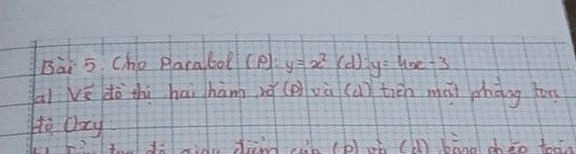 Bài 5: Cho Parabol (P): y = x² (d): y = 4x - 3
a) Vẽ đồ thị hai hàm số (P) và (d) trên mặt phẳng toạ
độ Oxy
điểm của (P) và (d) bằng phép toán